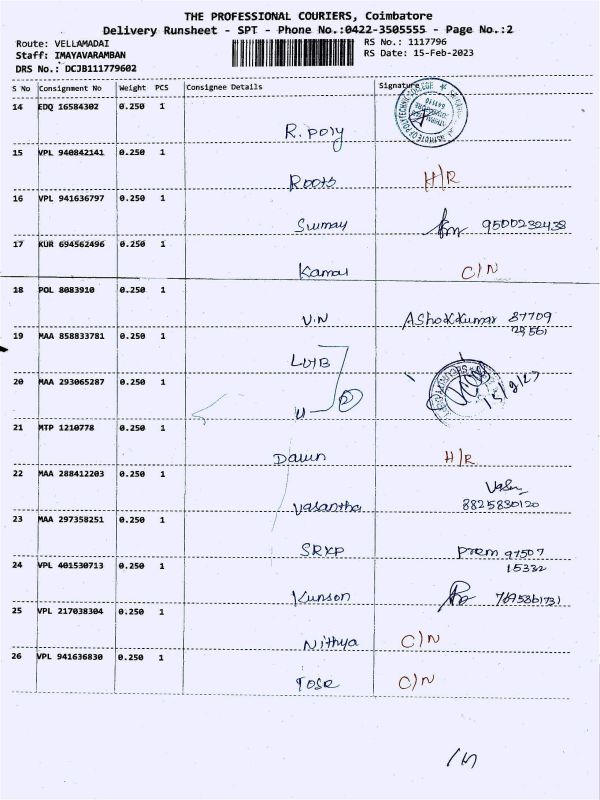 THE PROFESSIONAL COURIERS, Coimbatore
Delivery Runsheet - SPT - Phone No.:0422-3505555 - Page No.:2
Route: VELLAMADAI RS No.: 1117796
Staff: IMAYAVARAMBAN RS Date: 15-Feb-2023
DRS No.: DCJB111779602
S No Consignment No Weight PCS Consignee Details Signature
14 EDQ 16584302 0.250 1
R. poly
15 VPL 940842141 0.250 1
Roots H/R
16 VPL 941636797 0.250 1
9500232438
17 KUR 694562496 0.250 1
Kamal C/N
18 POL 8083910 0.250 1
V.N Ashokkumar 87709
19 MAA 858833781 0.250 1
20 MAA 293065287 0.250 1
21 MTP 1210778 0.250 1
H/R
22 MAA 288412203 0.250 1
Vasantha 8825830120
23 MAA 297358251 0.250 1
SRKP Prem 97507
15332
24 VPL 401530713 0.250 1
Kunson
25 VPL 217038304 0.250 1
Nithya C/N
26 VPL 941636830 0.250 1
C/N